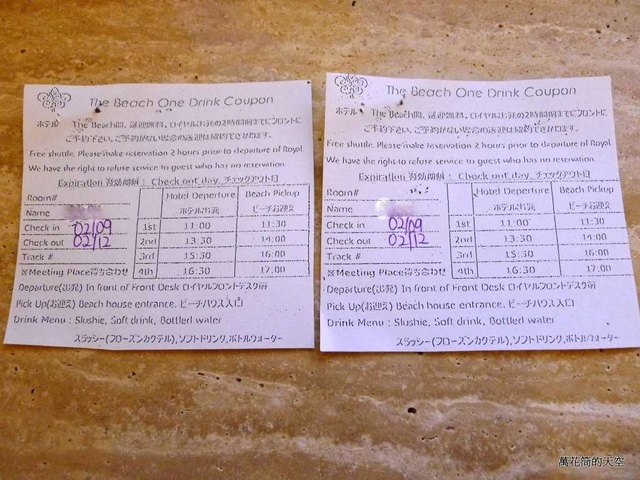 The Beach One Drink Coupon
ホテル The Beach間,送迎無料,ロイヤルお発の2時間前までにフロントに
ご予約下さい,ご予約がない
Free shuttle. Please make reservation 2 hours prior to departure of Royal
We have the right to refuse service to guest who has no reservation.
Expiration 有効期限 : Check out day,チェックアウト日
Room#
Name
Check in 02/09
Check out 02/12
Track #
※Meeting Place待ち合わせ
Hotel Departure Beach Pickup
ホテル出発 ビーチお迎え
1st 11:00 11:30
2nd 13:30 14:00
3rd 15:30 16:00
4th 16:30 17:00
Departure(出発) In front of Front Desk ロイヤルフロントデスク前
Pick Up(お迎え) Beach house entrance. ビーチハウス入口
Drink Menu : Slushie, Soft drink, Bottled water
スラッシー(フローズンカクテル),ソフトドリンク,ボトルウォーター
The Beach One Drink Coupon
ホテル The Beach間,送迎無料,ロイヤルお発の2時間前までにフロントに
ご予約下さい,ご予約がない
Free shuttle. Please make reservation 2 hours prior to departure of Royal
We have the right to refuse service to guest who has no reservation.
Expiration 有効期限 : Check out day,チェックアウト日
Room#
Name
Check in 02/09
Check out 02/12
Track #
※Meeting Place待ち合わせ
Hotel Departure Beach Pickup
ホテル出発 ビーチお迎え
1st 11:00 11:30
2nd 13:30 14:00
3rd 15:30 16:00
4th 16:30 17:00
Departure(出発) In front of Front Desk ロイヤルフロントデスク前
Pick Up(お迎え) Beach house entrance. ビーチハウス入口
Drink Menu : Slushie, Soft drink, Bottled water
スラッシー(フローズンカクテル),ソフトドリンク,ボトルウォーター
萬花筒的天空